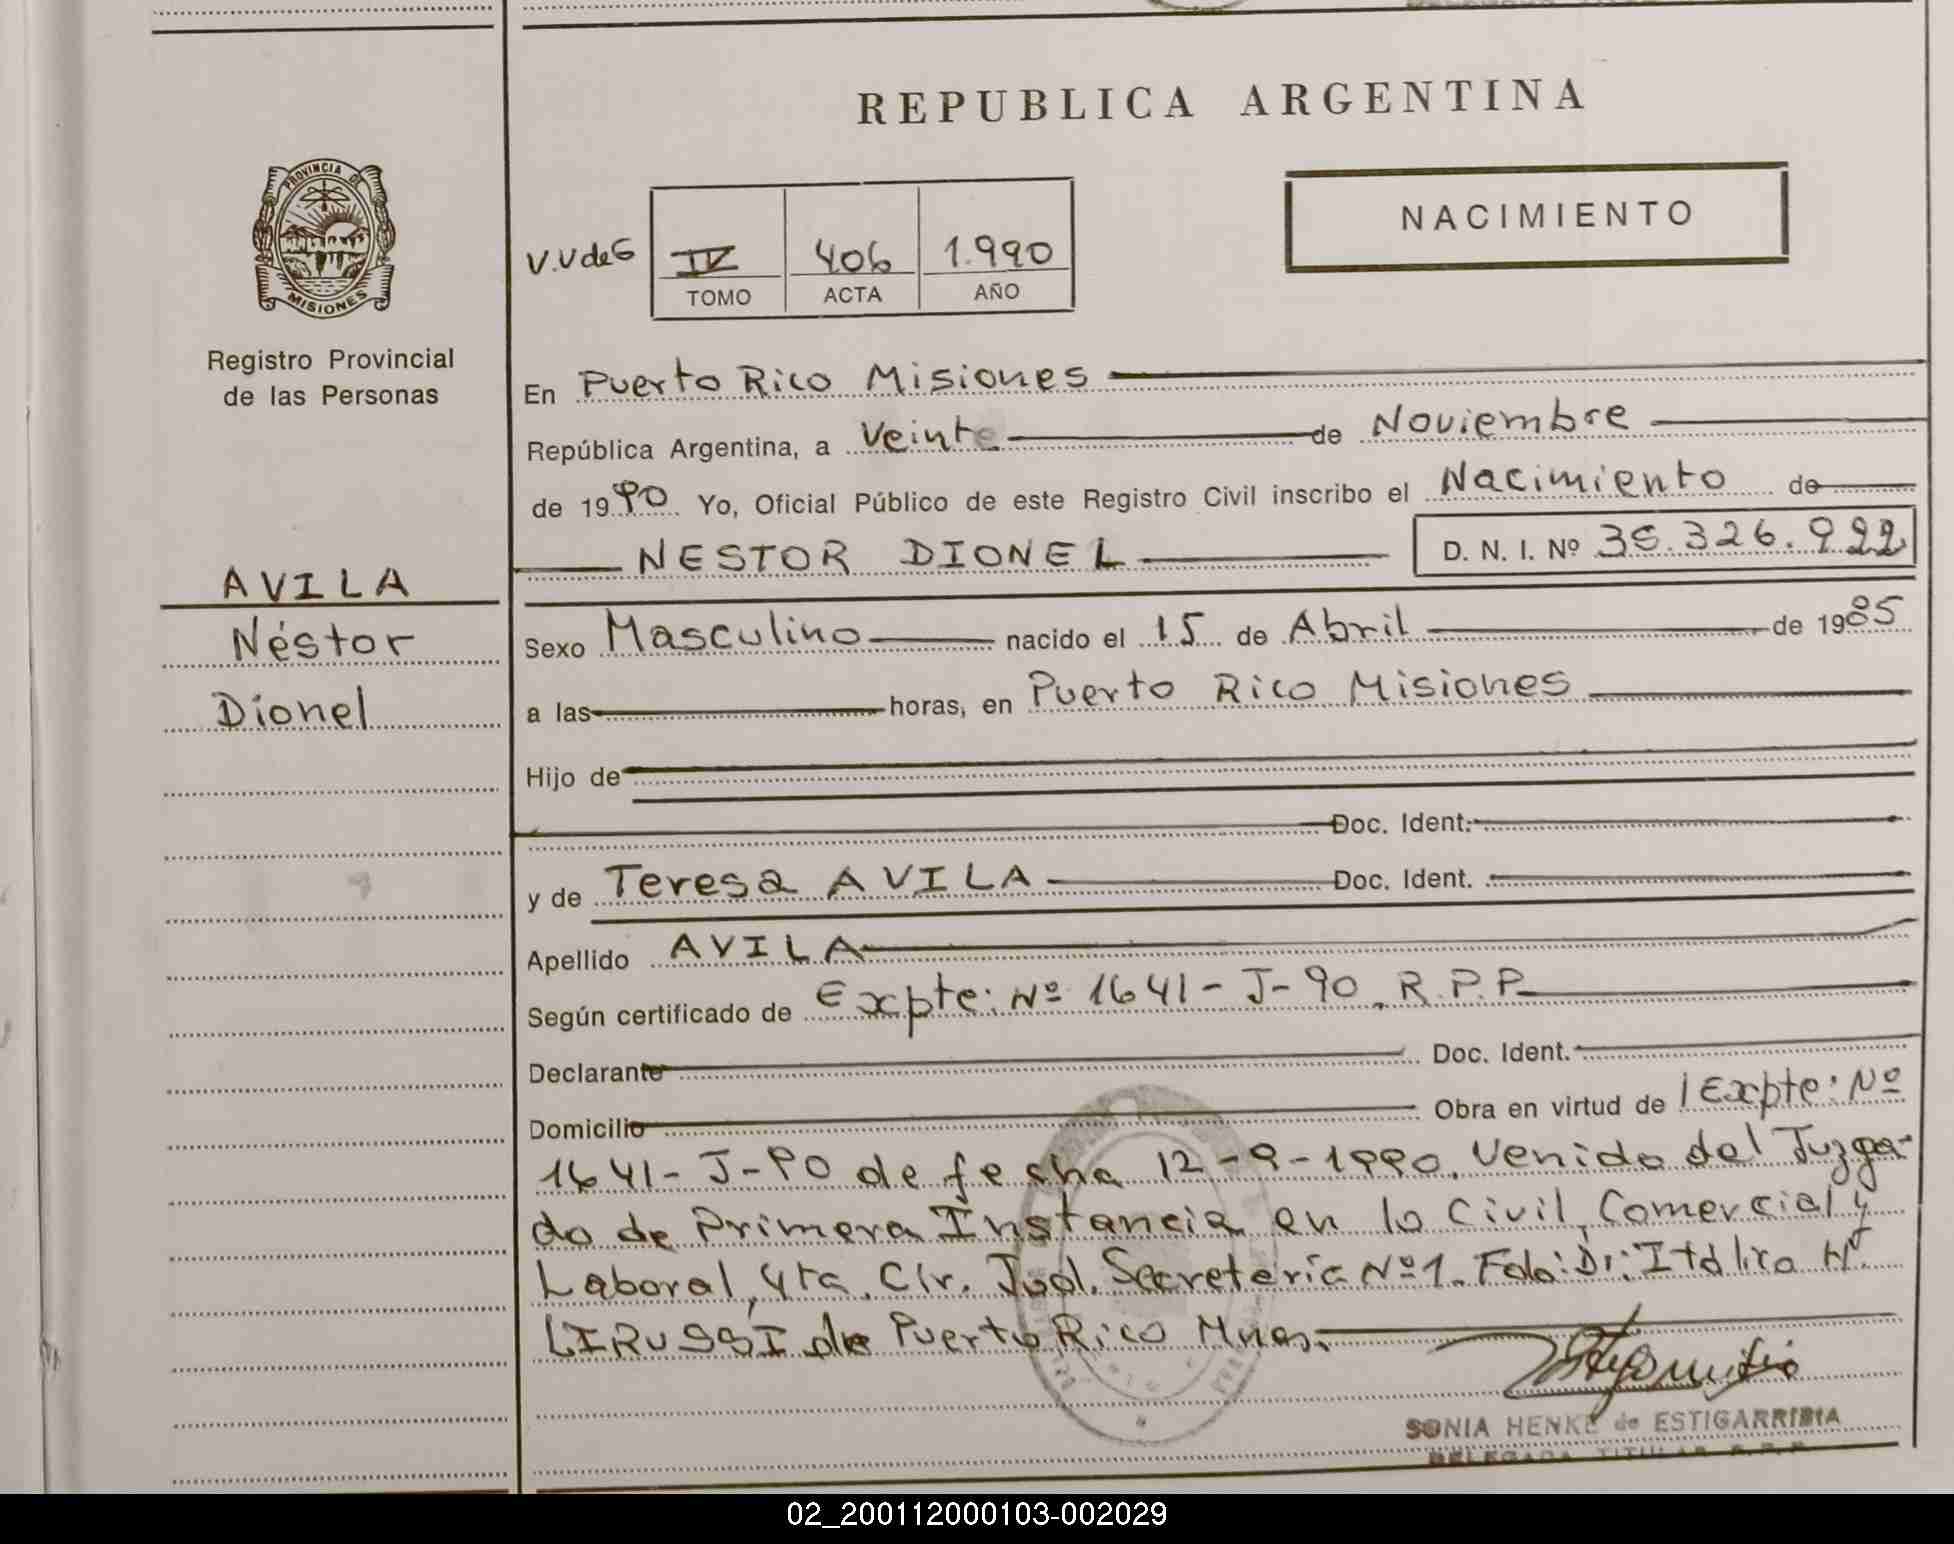 REPUBLICA ARGENTINA
PROVINCIA DE
MISIONES
Registro Provincial
de las Personas
NACIMIENTO
V.V de G
IV 406 1.990
TOMO ACTA AÑO
En Puerto Rico Misiones
República Argentina, a Veinte de Noviembre
de 1990 Yo, Oficial Público de este Registro Civil inscribo el Nacimiento de
NESTOR DIONEL D. N. I. Nº 35.326.922
AVILA
Néstor
Dionel
Sexo Masculino nacido el 15 de Abril de 1985
a las horas, en Puerto Rico Misiones
Hijo de
Doc. Ident.
y de Teresa AVILA Doc. Ident.
Apellido AVILA
Según certificado de Expte: Nº 1641-J-90. R.P.P.
Declarante Doc. Ident.
Domicilio Obra en virtud de Expte: Nº
1641-J-90 de fecha 12-9-1990. Venido del Juzga-
do de Primera Instancia en lo Civil, Comercial y
Laboral, 4ta. Cir. Jud. Secretería Nº1. Fdo: Dr: Itálico H.
LIRUSSI de Puerto Rico Mnes.
SONIA HENKE de ESTIGARRIBIA
DELEGADA TITULAR R.P.P.
02_200112000103-002029